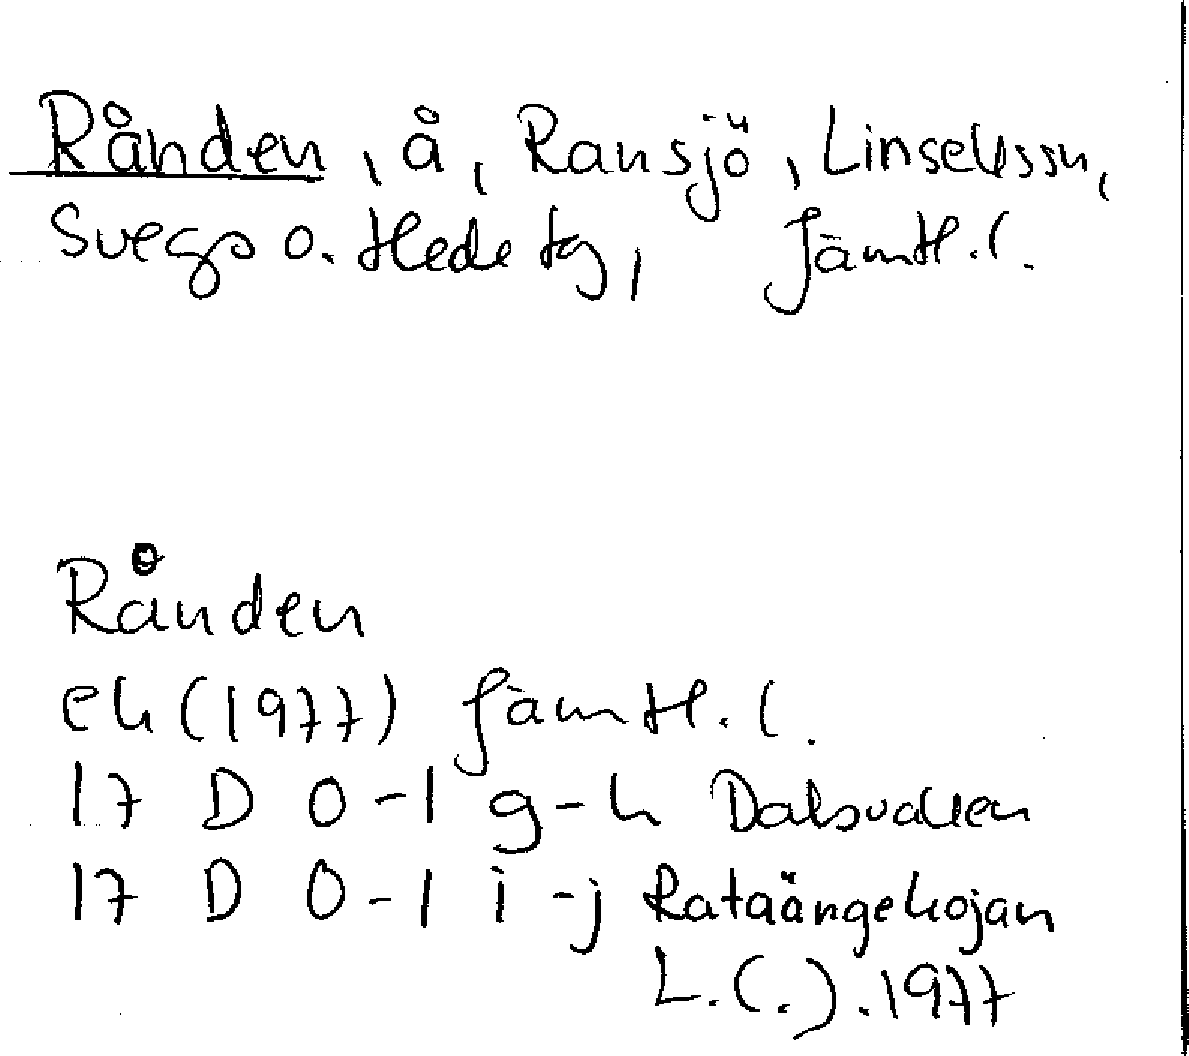 Rånden, å, Ransjö, Linsellssn,
Svegs o. Hede tg, Jämtl. l.
Rånden
ek (1977) Jämtl. l.
17 D 0-1 g-h Dalsvallen
17 D 0-1 i-j Rataängekojan
L.(.).1977